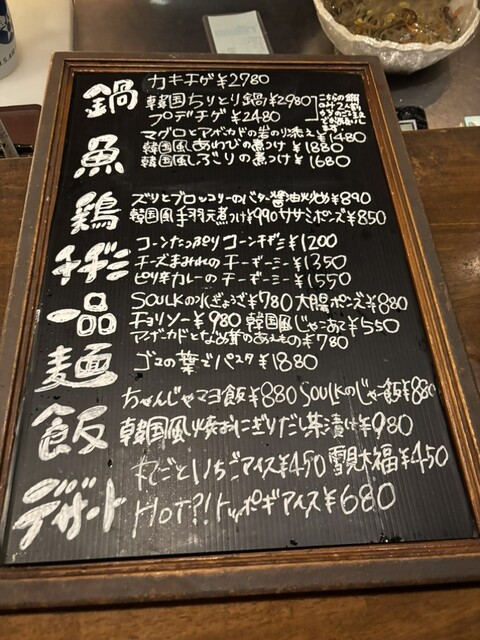 鍋
カキチゲ ¥2780
韓国ちりとり鍋 ¥2980
プデチゲ ¥2480
こちらの鍋
魚
マグロとアボカドの岩のり添え ¥1480
韓国風あわびの煮つけ ¥1880
韓国風ぶりの煮つけ ¥1680
鶏
ズリとブロッコリーのバター醤油炒め ¥890
韓国風手羽元煮つけ ¥990 ササミポンズ ¥850
チヂミ
コーンたっぷりコーンチヂミ ¥1200
チーズまみれのチーヂーミー ¥1350
ピリ辛カレーのチーヂーミー ¥1550
一品
SOULKの水ぎょうざ ¥780 大腸ポンズ ¥880
チョリソー ¥980 韓国風じゃこあえ ¥550
アボカドとなめ茸のあえもの ¥780
麺
ゴマの葉でパスタ ¥1880
飯
ちゃんじゃマヨ飯 ¥880 SOULKのじゃー飯 ¥880
韓国風焼おにぎりだし茶漬け ¥980
デザート
まるごといちごアイス ¥450 雪見大福 ¥450
HOT?! トッポギアイス ¥680